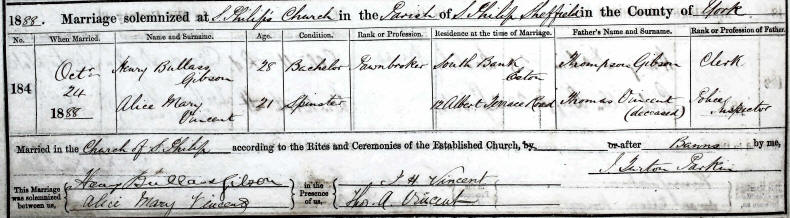 1888. Marriage solemnized at S. Philip's Church in the Parish of S. Philip Sheffield in the County of York
No. When Married. Name and Surname. Age. Condition. Rank or Profession. Residence at the time of Marriage. Father's Name and Surname. Rank or Profession of Father.
184 Octr 24 1888 Henry Bullass Gibson 28 Bachelor Pawnbroker South Bank Eston Thompson Gibson Clerk
Alice Mary Vincent 21 Spinster 12 Albert Terrace Road Thomas Vincent (deceased) Police Inspector
Married in the Church of S. Philip according to the Rites and Ceremonies of the Established Church, by or after Banns by me,
J. Turton Parkin
This Marriage was solemnized between us, Henry Bullass Gibson in the Presence of us, J H Vincent
Alice Mary Vincent Thos. A Vincent